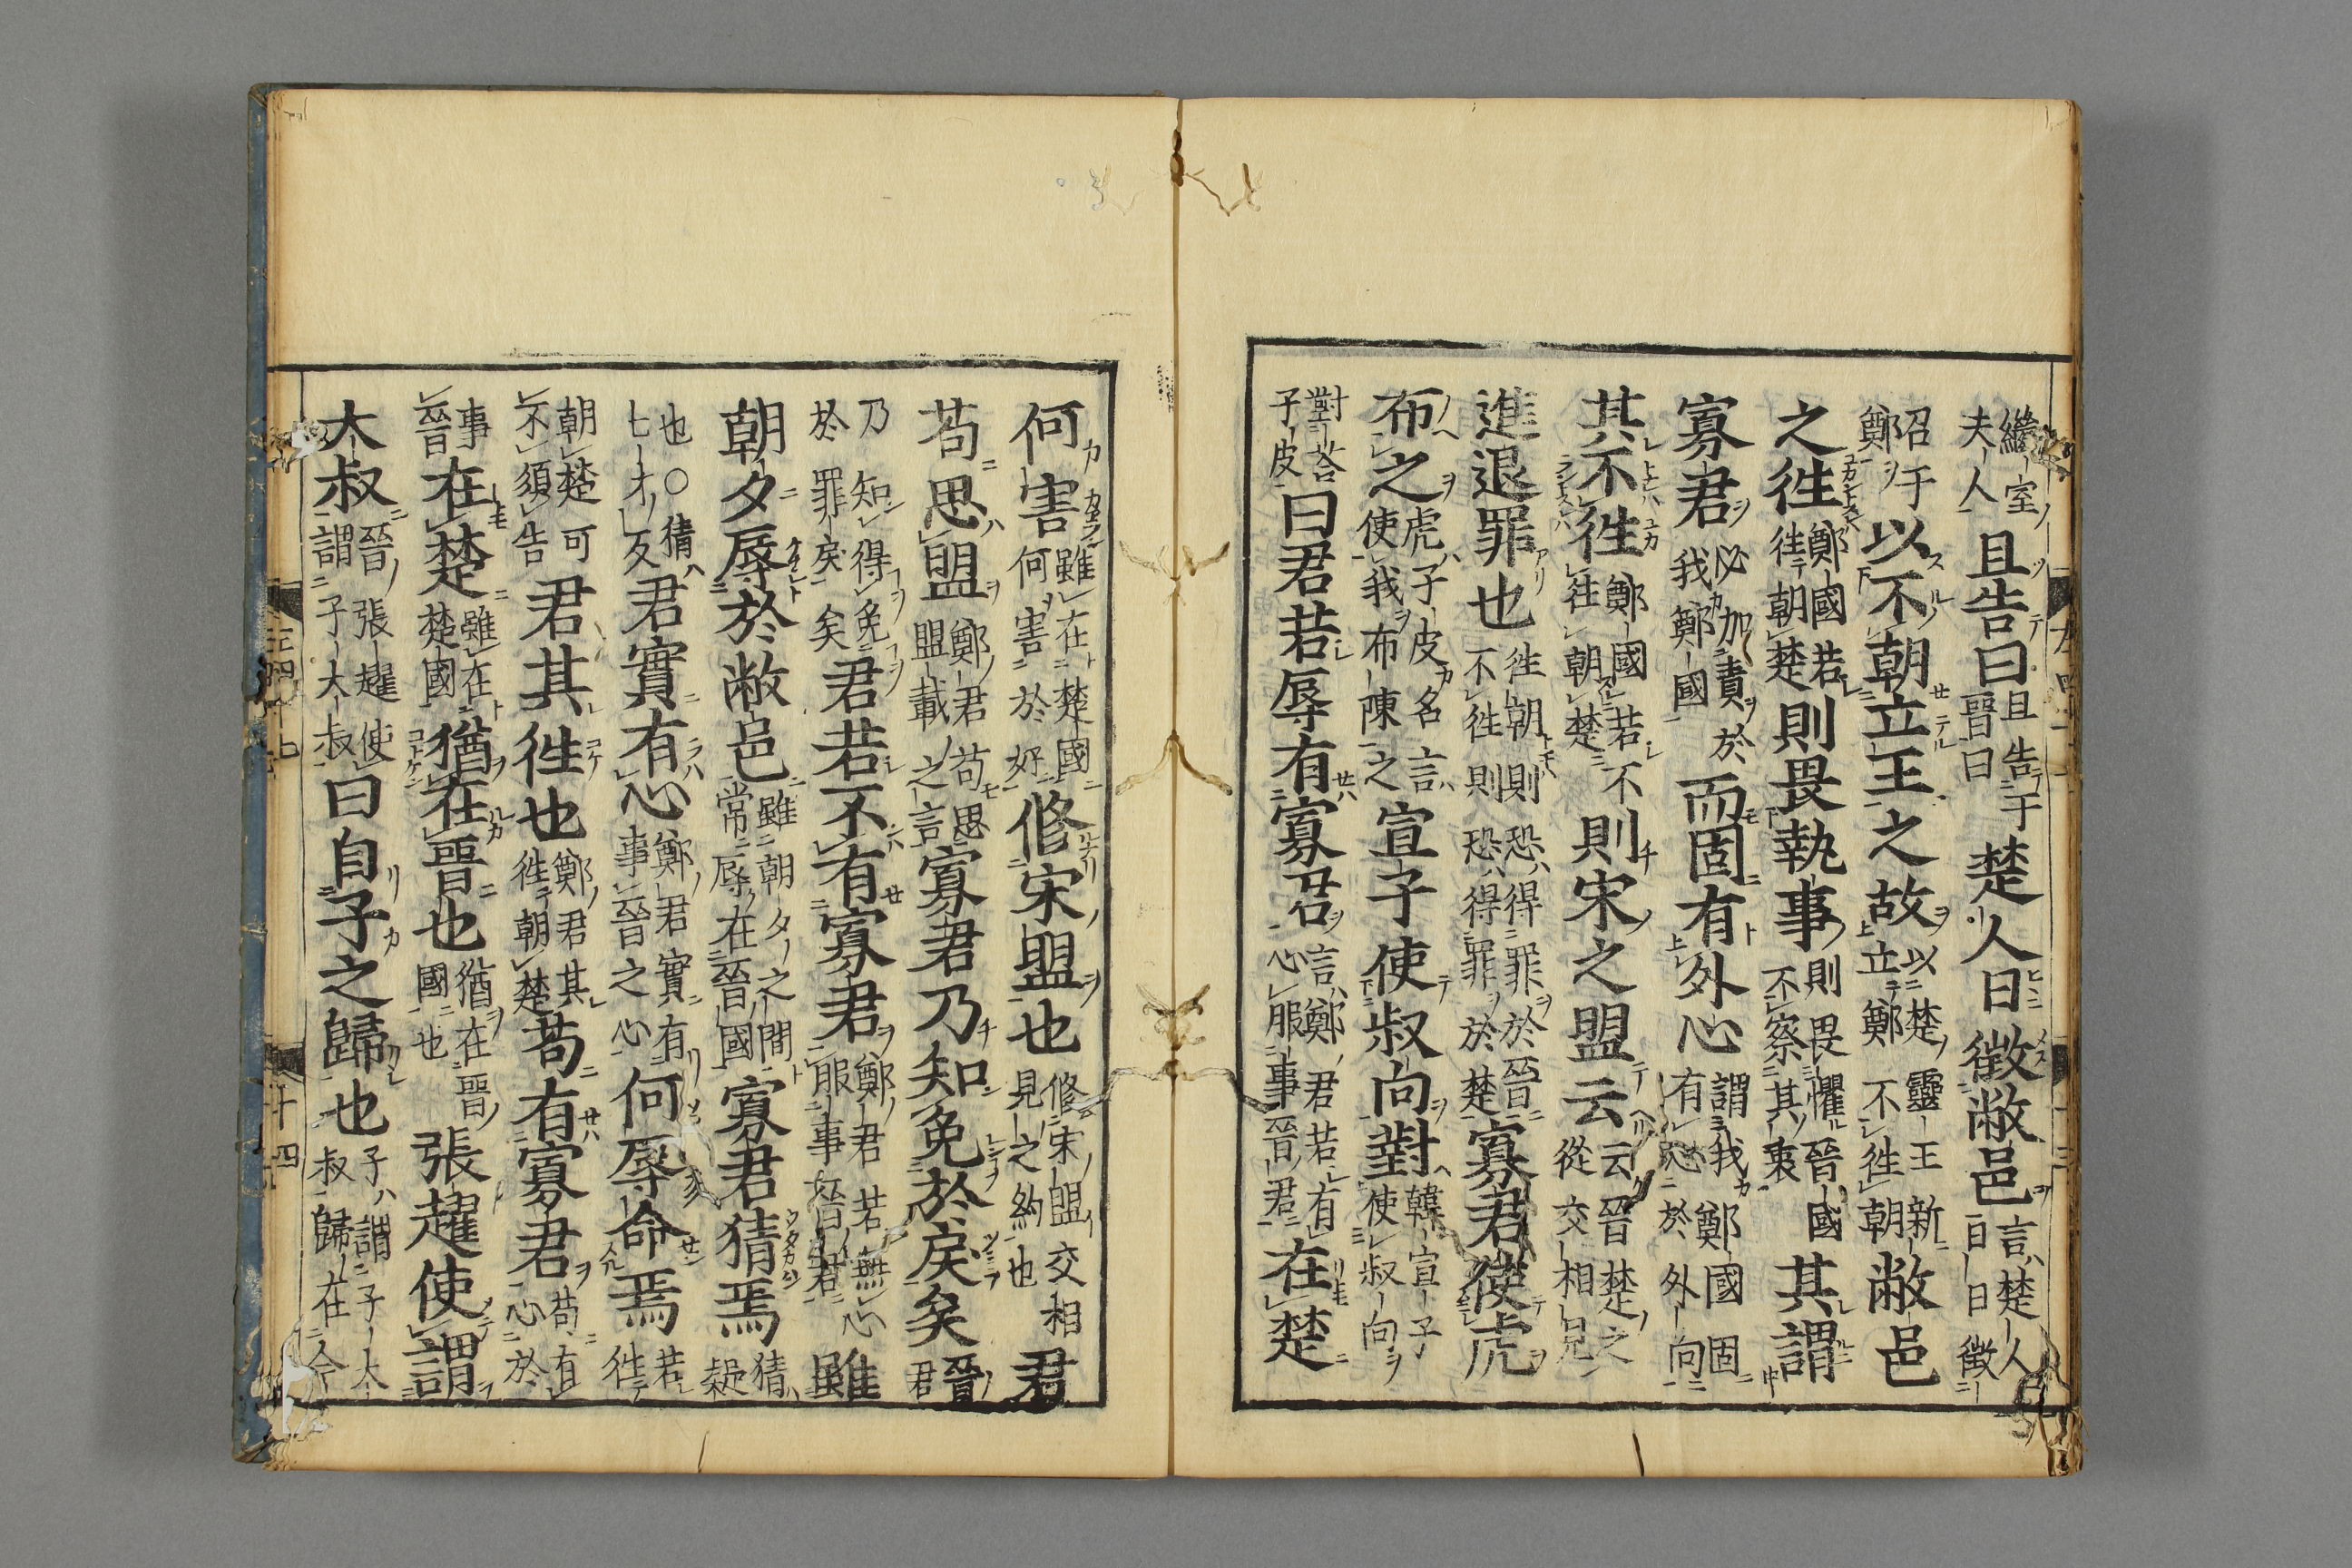 繼室夫人且告曰且告于晋曰楚人日徴敝邑言楚人日日徴
召于鄭以不朝立王之故以楚靈王新立鄭不徃朝敝邑
之徃鄭國若徃朝楚則畏執事則畏懼晉國不察其衷其謂
寡君必加責於我鄭國而固有外心謂我鄭國固有心於外向
其不徃鄭國若不徃朝楚則宋之盟云云晉楚之從交相見
進退罪也徃朝則恐得罪於晉不徃則恐得罪於楚寡君使虎
布之虎子皮名言使我布陳之宣子使叔向對韓宣子使叔向
對荅子皮曰君若辱有寡君言鄭君若有心服事晉君在楚
何害雖在楚國何害於好修宋盟也修宋盟交相見之約也君
苟思盟鄭君苟思盟載之言寡君乃知免於戾矣晉君
乃知得免於罪戾矣君若不有寡君鄭君若無心服事晉君雖
朝夕辱於敝邑雖朝夕之間常辱在晉國寡君猜焉猜疑
也○猜七才反君實有心鄭君實有事晉之心何辱命焉若徃
朝楚可不須告君其徃也鄭君其徃朝楚苟有寡君苟有心於
事晉在楚雖在楚國猶在晉也猶在晉國也張趯使謂
大叔晉張趯使謂子大叔曰自子之歸也子謂子大叔歸在今
十四